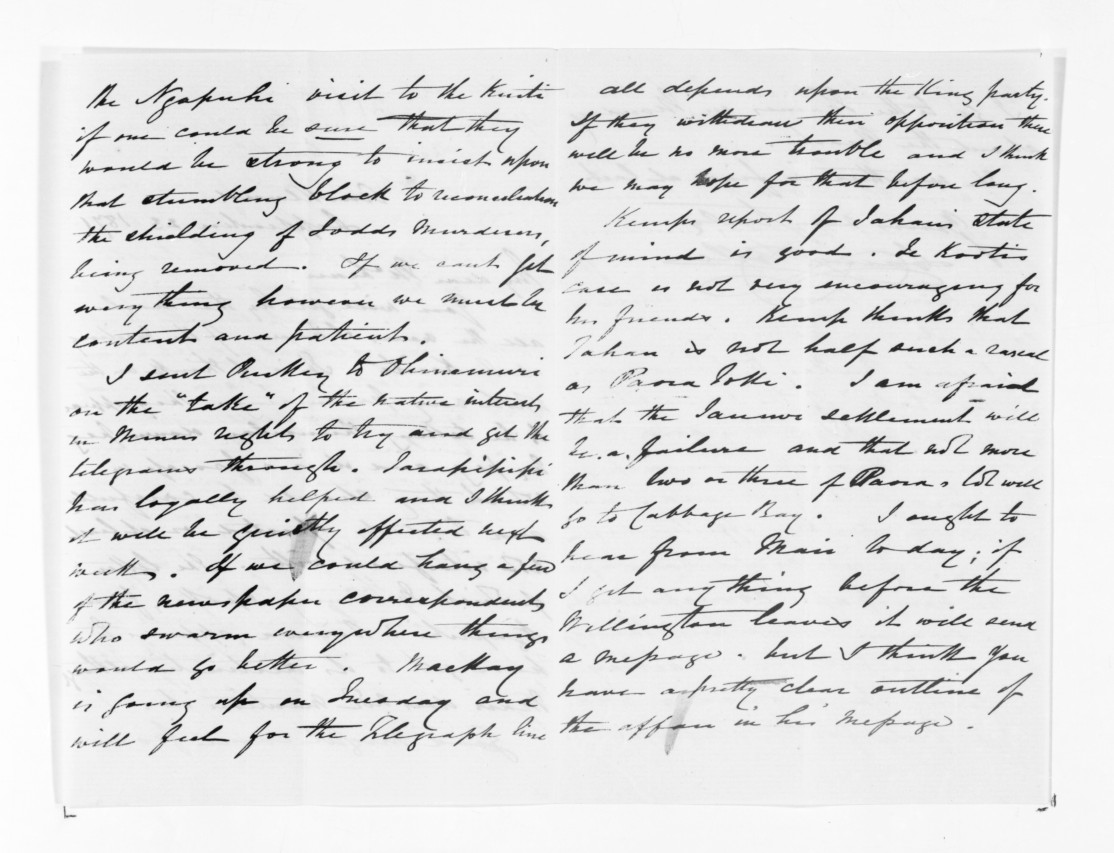 the Ngapuhi visit to the Kuiti
if one could be sure that they
would be strong to insist upon
that stumbling block to reconciliation
the shielding of Todds Murderers,
being removed. If we cant get
everything however we must be
content and patient.
I sent Puckey to Ohinemuri
on the "take" of the native interests
in Miners rights to try and get the
telegrams through. Tarapipipi
has loyally helped and I think
it will be quietly effected next
week. If we could hang a few
of the newspaper correspondents
who swarm everywhere things
would go better. Mackay
is going up on Tuesday and
will feel for the Telegraph line
all depends upon the King party.
If they withdraw their opposition there
will be no more trouble and I think
we may hope for that before long.
Kemps report of Tahau's state
of mind is good. Te Kooti's
case is not very encouraging for
his friends. Kemp thinks that
Tahau is not half such a rascal
as Paora Toki. I am afraid
that the settlement will
be a failure and that not more
than two or three of Paora's lot will
go to Cabbage Bay. I ought to
hear from Mair to day; if
I get anything before the
Wellington leaves it will send
a message. but I think you
have a pretty clear outline of
the affair in his message.